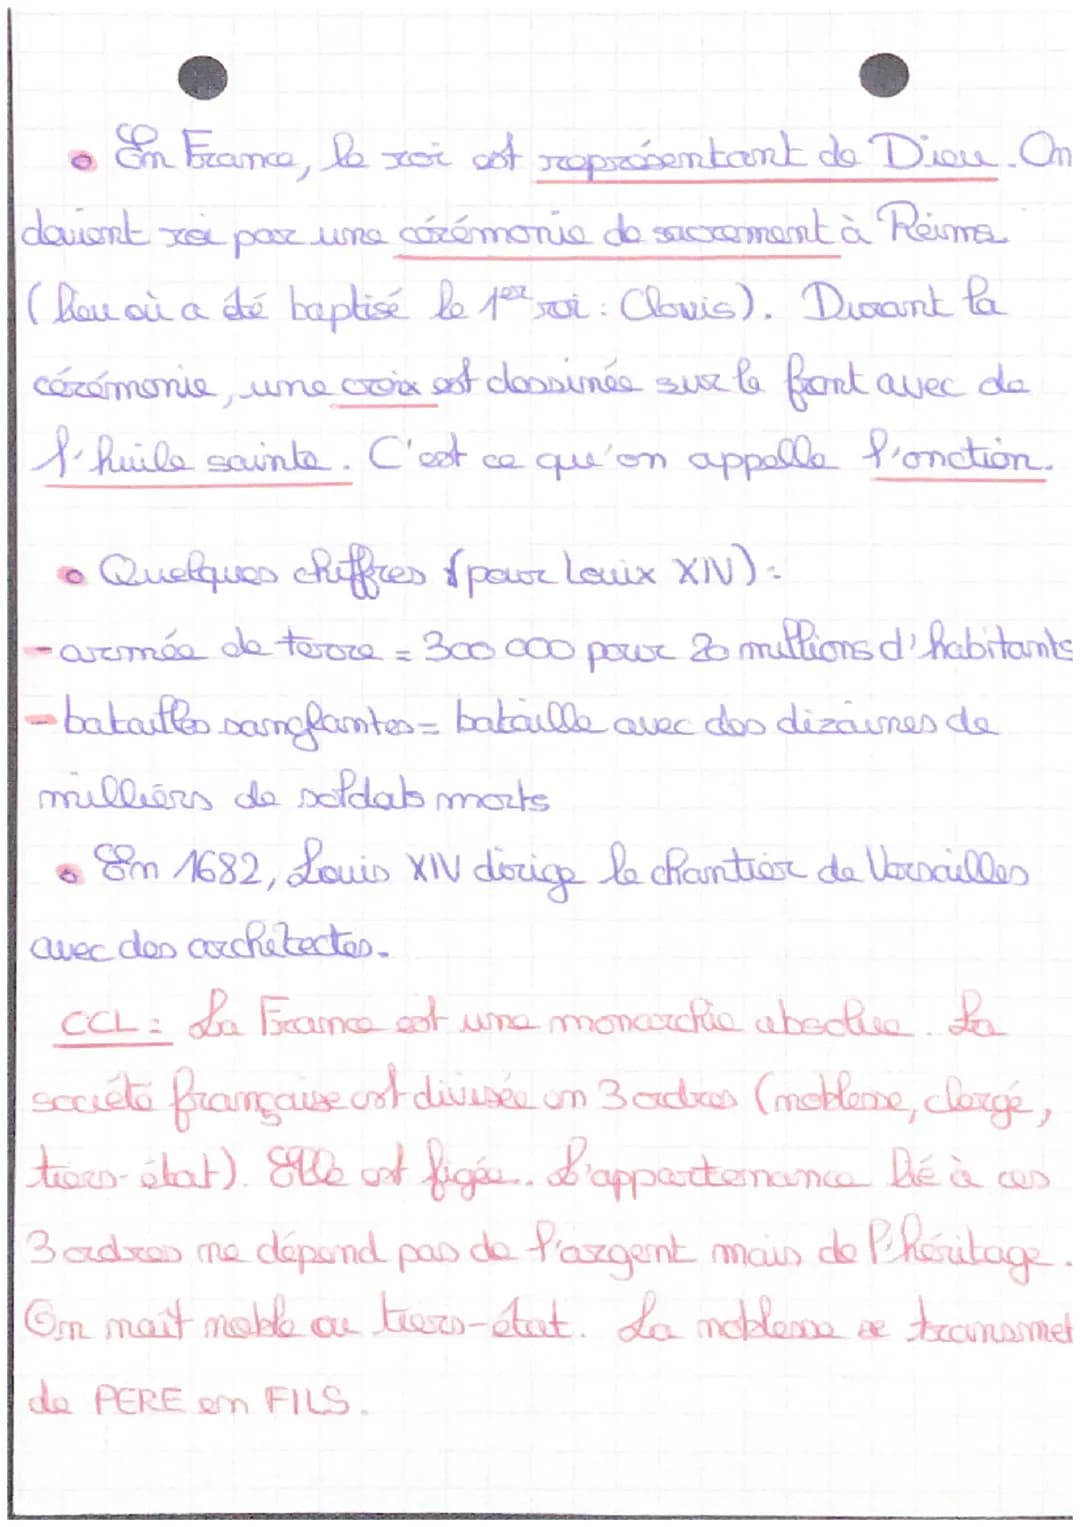 • En France, le roi est représentant de Dieu. On
devient roi par une cérémonie de sacrement à Reims
(lieu où a été baptisé le 1er roi : Clovis). Durant la
cérémonie, une croix est dessinée sur le front avec de
l'huile sainte. C'est ce qu'on appelle l'onction.
• Quelques chiffres (pour Louix XIV) :
- armée de terre = 300 000 pour 20 millions d'habitants
- batailles sanglantes = bataille avec des dizaines de
milliers de soldats morts
• En 1682, Louis XIV dirige le chantier de Versailles
avec des architectes.
CCL : La France est une monarchie absolue. La
société française est divisée en 3 ordres (noblesse, clergé,
tiers-état). Elle est figée.. L'appartenance lié à ces
3 ordres ne dépend pas de l'argent mais de l'héritage.
On nait noble ou tiers-état. La noblesse se transmet
de PERE en FILS.